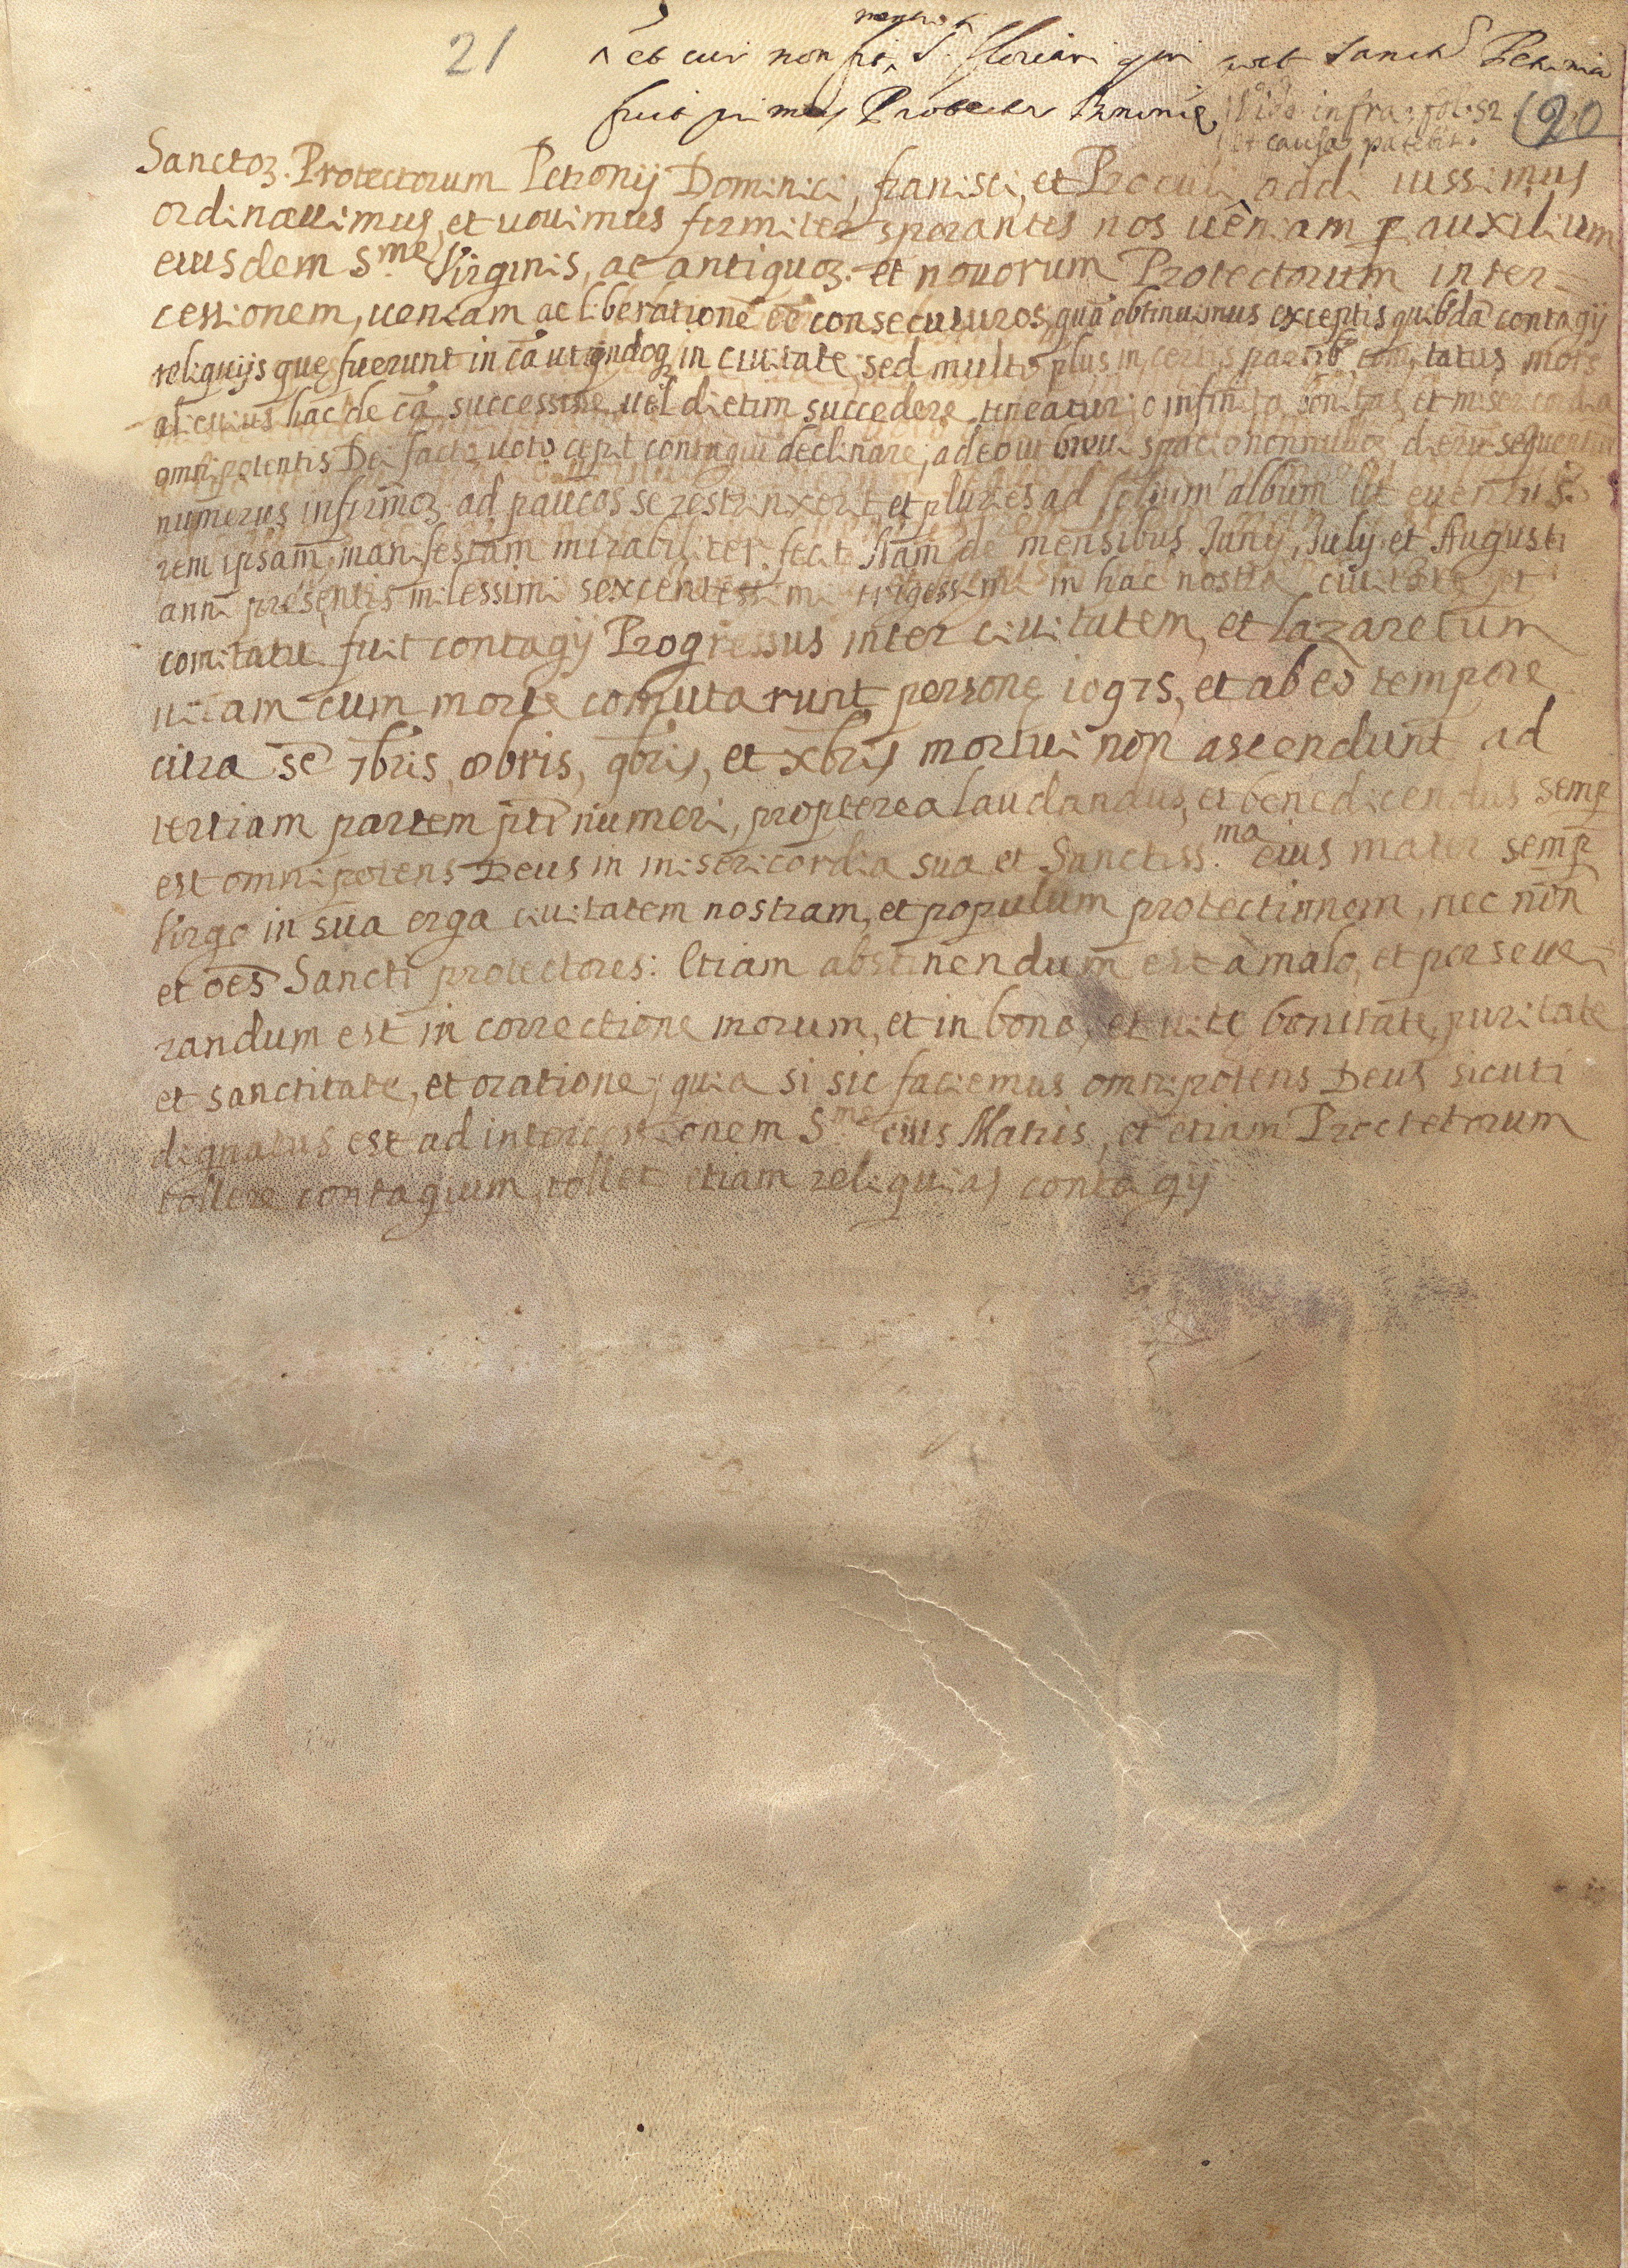 21
mentio
et cur non fit S. Floriani qui ante Sanct Petroniu
fuit primus Protector Bononię
Vide infra: fol: 52
et causa patebit.
20
Sanctoꝝ. Protectorum Petronij Dominici, franisci, et Proculi addi iussimus
ordinauimus, et uouimus firmiter sperantes nos uêniam ꝑ auxilium
eiusdem S.me Virginis, ac antiquoꝝ. et nouorum Protectorum inter-
cessionem, ueniam ac liberationē consecuturos, quā obtinuimus exceptis quibdā contagij
reliquijs quę fuerunt in cā ut qndoq in ciuitate, sed multo plus in certis partib comitatus mors
alicuius hac de cā successiue, uel dietim succedere uideatur; infinita bonitas, et misericordia
omnipotentis Dei facto uoto cepit contagiū declinare, adeo ut breui spacio nonnulloꝝ dierū sequentiū
numerus infirmoꝝ. ad paucos se restrinxerit, et pluries ad solum album ut euentus
rem ipsam manifestam mirabiliter fecit Nam de mensibus Junij, Julij et Augusti
anni presentis milessimi sexcentessimi trigessimi in hac nostra ciuitate et
comitatu fuit contagij Progressus inter ciuitatem, et lazaretum
uitam cum morte comutarunt personę 10975, et ab eo tempore
citra se 7bris, 8bris, 9bris, et xbris mortui non ascendunt ad
tertiam partem pti numeri, propterea laudandus, et benedicendus semꝑ
est omnipotens Deus in misericordia sua et Sanctiss.ma eius mater semꝑ
Virgo in sua erga ciuitatem nostram, et populum protectionem, nec nōn
et oēs Sancti protectores: Etiam abstinendum est à malo, et perseue-
randum est in correctione morum, et in bono, et uitę bonitate, puritate
et sanctitate, et oratione; quia si sic faciemus omnipotens Deus sicuti
dignatus est ad intercessionem S.me eius Matris, et etiam Proctetorum
tollere contagium, tollet etiam reliquias contagij